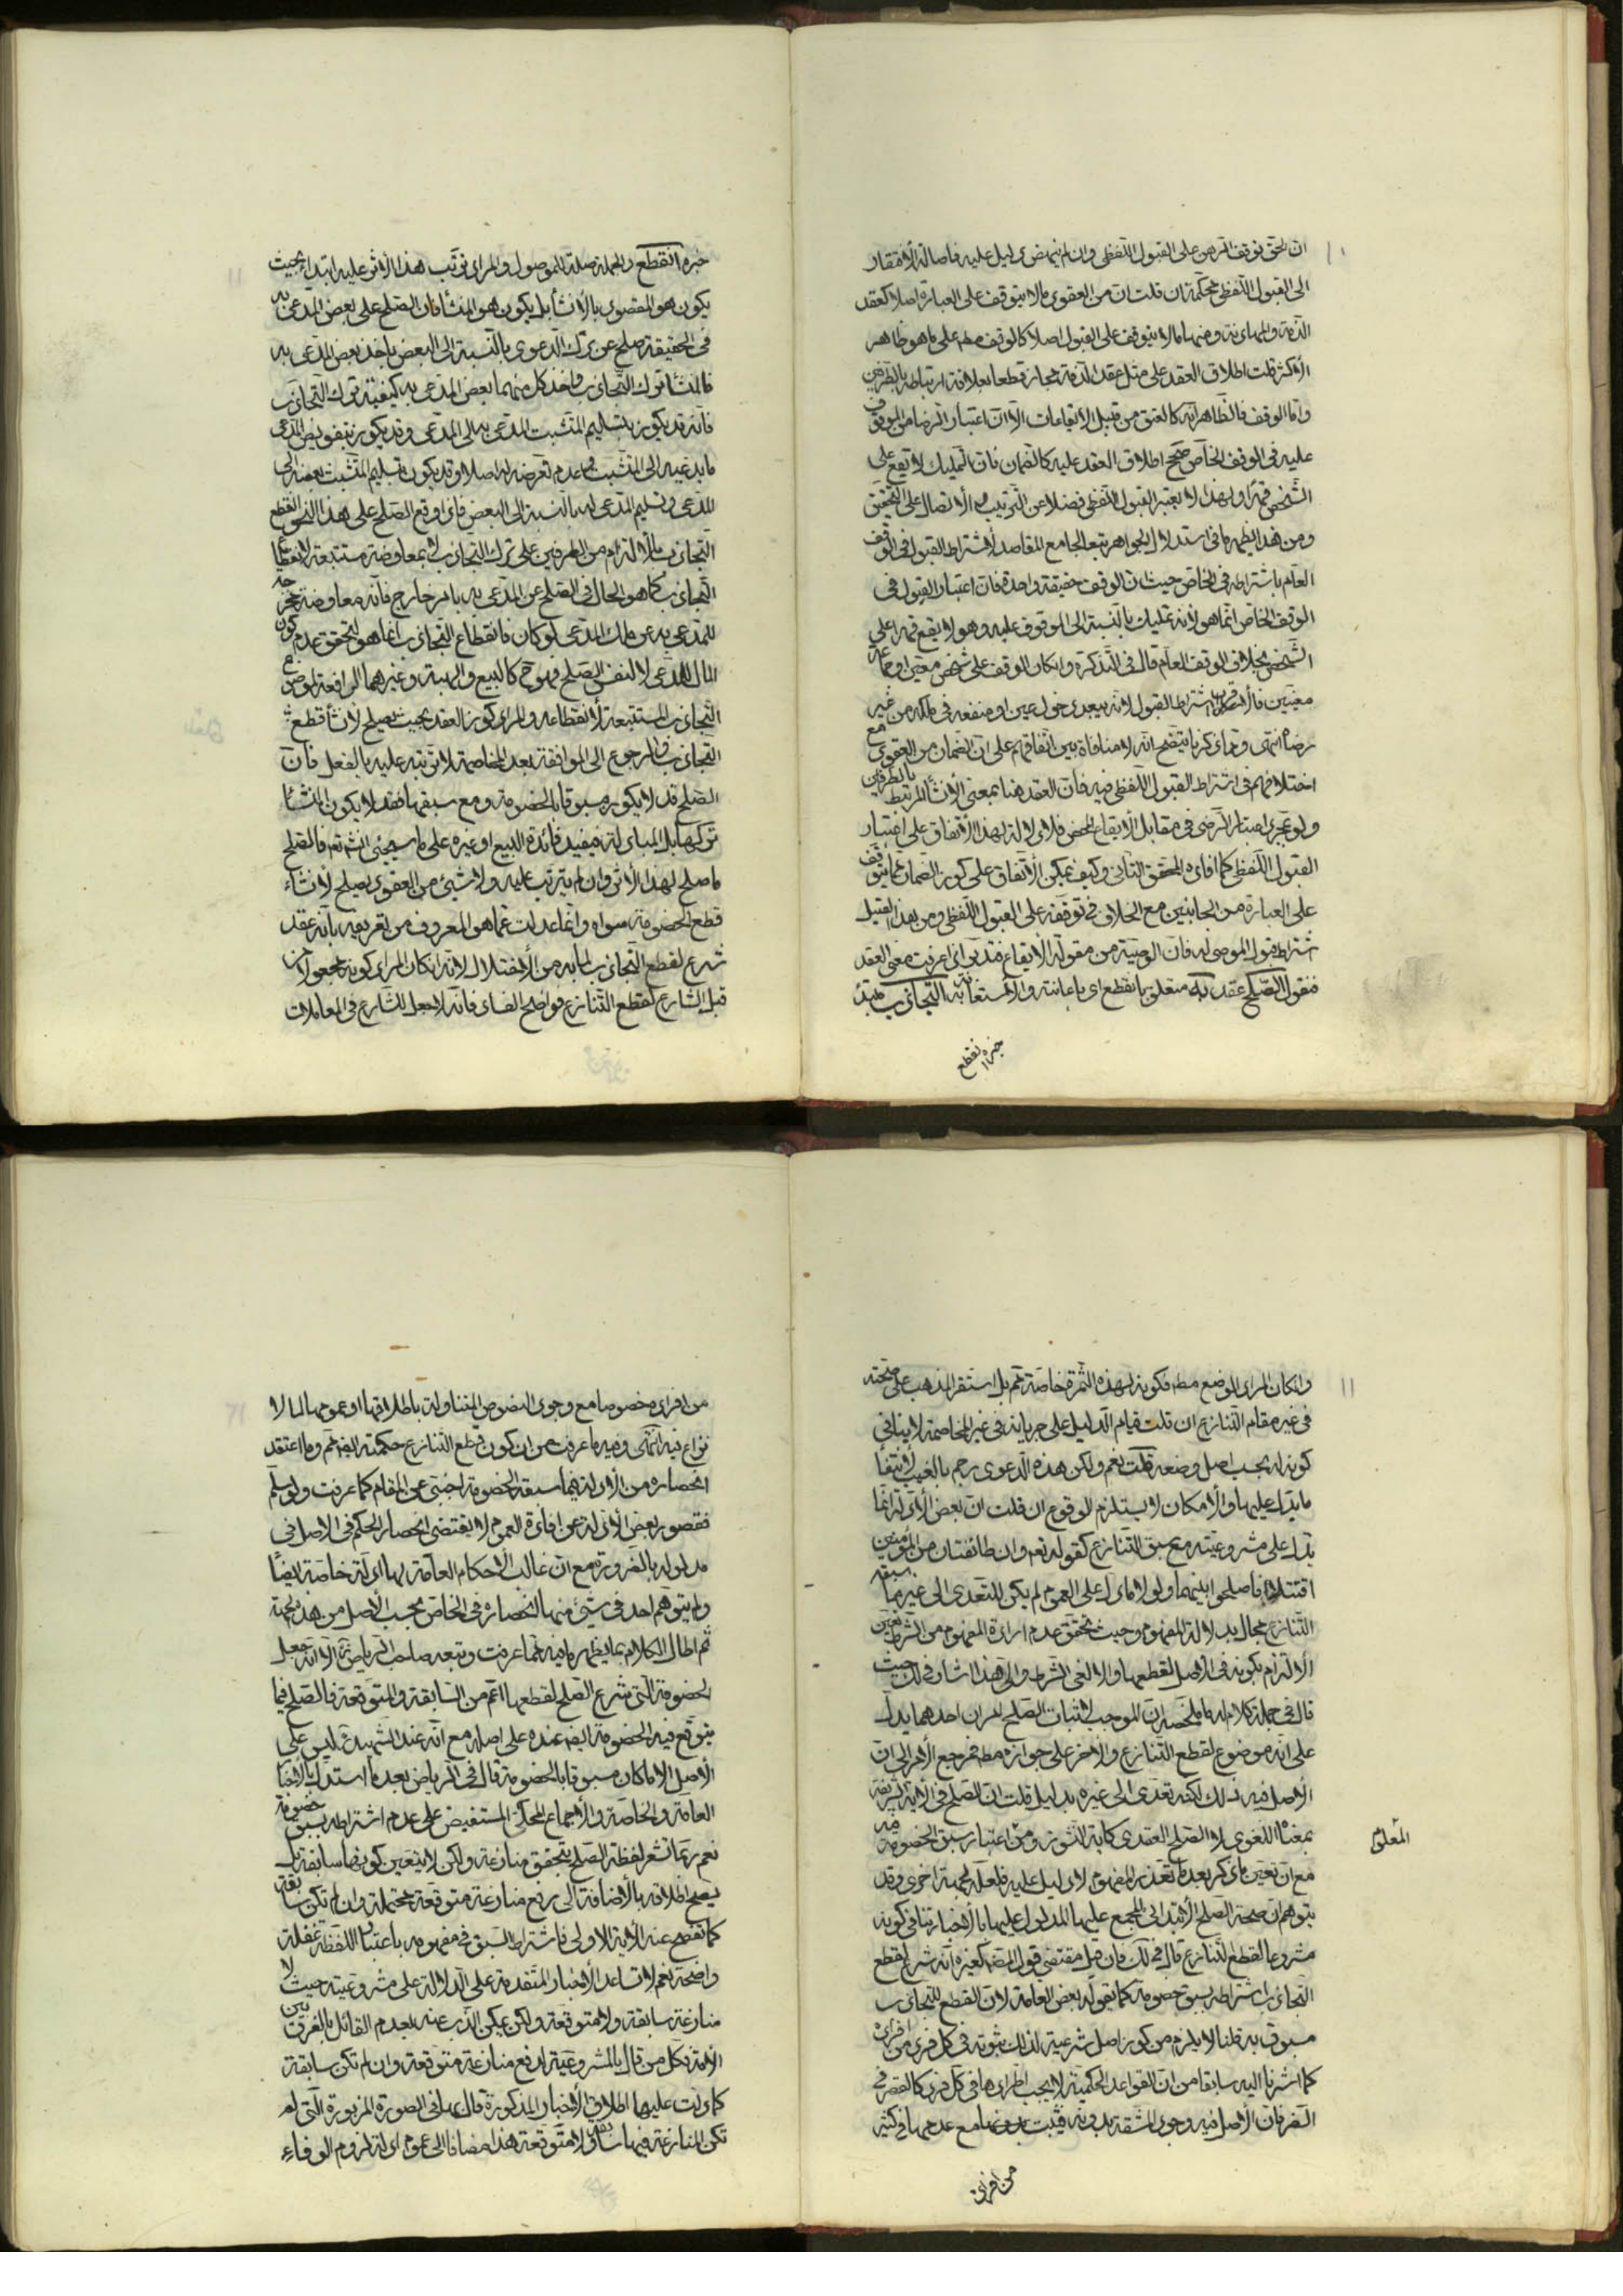 ان الحق توقف الرهن على القبول اللفظی وان لم ینهض دلیل علیه فاصالة الافتقار
الی القبول اللفظی محکمة ان قلت ان من العقود ما لا یتوقف علی العبارة اصلا کعقد
الذمة والمهادنة ومنها ما لا یتوقف علی القبول اصلا کالوقف مطه علی ما هو ظاهر
الأکثر قلت اطلاق العقد علی مثل عقد الذمة مجاز قطعا بعلاقة ارتباطه بالطرفین
واما الوقف فالظاهر انه کالعتق من قبیل الایقاعات الا ان اعتبار الرضا من الموقوف
علیه فی الوقف الخاص صحح اطلاق العقد علیه کالضمان فان التملیك لا یقع علی
الشخص قهرا ولهذا لا یعتبر القبول اللفظی فضلا عن الترتیب والاتصال علی التحقیق
ومن هذا یظهر ما فی استدلال الجواهر تبعا لجامع المقاصد لاشتراط القبول فی الوقف
العام باشتراطه فی الخاص حیث ان الوقف حقیقة واحدة فان اعتبار القبول فی
الوقف الخاص انما هو لانه تملیك بالنسبة الی الموقوف علیه وهو لا یقع قهرا علی
الشخص بخلاف الوقف العام قال فی التذکرة وان کان الوقف علی شخص معین او جماعة
معینین فالاقرب اشتراط القبول لانه یبعد دخول عین او منفعة فی ملکه من غیر
رضاه انتهی ومما ذکرنا یتضح انه لا منافاة بین اتفاقهم علی ان الضمان من العقود مع
اختلافهم فی اشتراط القبول اللفظی فیه فان العقد هنا بمعنی الانشاء المرتبط بالطرفین
ولو بمجرد اعتبار الرضی فی مقابل الایقاع المحض فلا دلالة لهذا الاتفاق علی اعتبار
القبول اللفظی کما افاده المحقق الثانی وکیف یمکن الاتفاق علی کون الضمان مما یتوقف
علی العبارة من الجانبین مع الخلاف فی توقفه علی القبول اللفظی ومن هذا القبیل
اشتراط قبول الموصی له فان الوصیة من مقولة الایقاع فتدبر اذا عرفت معنی العقد
فنقول الصلح عقد به متعلق بانقطع ای باعانته والاستعانة به التجاذب مبتدء
خبره انقطع
خبره انقطع والجملة صلة للموصول والمراد ترتب هذا الاثر علیه ابتداء بحیث
یکون هو المقصود بالانشاء بل یکون هو المنشأ فان الصلح علی بعض المدعی به
فی الحقیقة صلح عن ترك الدعوی بالنسبة الی البعض باخذ بعض المدعی به
فالمنشأ ترك التجاذب واخذ کل منهما بعض المدعی به کیفیة ترك التجاذب
فانه قد یکون بتسلیم المتشبث المدعی به الی المدعی وقد یکون بتفویض المدعی
ما یدعیه الی المتشبث وعدم تعرضه له اصلا وقد یکون بتسلیم المتشبث بعضه الی
المدعی وتسلیم المدعی له بالنسبة الی البعض فاذا وقع الصلح علی هذا النحو انقطع
التجاذب بالالتزام من الطرفین علی ترك التجاذب لا بمعاوضة مستتبعة لانقطاع
التجاذب کما هو الحال فی الصلح عن المدعی به بامر خارج فانه معاوضة مخرجة
للمدعی به عن ملك المدعی لو کان فانقطاع التجاذب انما هو لتحقق عدم کون
المال للمدعی لا لنفس الصلح فهو ح کالبیع والهبة وغیرهما الرافعة لموضوع
التجاذب المستتبعة لانقطاعه والمراد کون العقد بحیث یصلح لانشاء قطع
التجاذب والرجوع الی الموافقة بعد المخاصمة لا ترتبه علیه بالفعل فان
الصلح قد لا یکون مسبوقا بالخصومة ومع سبقها فقد لا یکون المنشأ
ترکها بل المبادلة فیفید فائدة البیع او غیره علی ما سیجئ انشه تعه فالصلح
ما صلح لهذا الاثر وان لم یترتب علیه ولا شیئ من العقود یصلح لانشاء
قطع الخصومة سواه وانما عدلت عما هو المعروف من تعریفه بانه عقد
شرع لقطع التجاذب لما به من الاختلال لانه ان کان المراد کونه مجعولا من
قبل الشارع لقطع التنازع فواضح الفساد فانه لا جعل للشارع فی المعاملات
وان کان المراد الوضع مطه فکونه لهذه الثمرة خاصة ثم بل استقر المذهب علی صحته
فی غیر مقام التنازع ان قلت قیام الدلیل علی جریانه فی غیر المخاصمة لا ینافی
کونه له بحسب اصل وضعه قلت نعم ولکن هذه الدعوی رجم بالغیب لانتفاء
ما یدل علیها والامکان لا یستلزم الوقوع ان قلت ان بعض الادلة انما
یدل علی مشروعیته مع سبق التنازع کقوله تعه وان طائفتان من المؤمنین
اقتتلا فاصلحوا بینهما ولولا ما دل علی العموم لم یکن للتعدی الی غیر ما سبقه
التنازع مجال بدلالة المفهوم وحیث تحقق عدم ارادة المفهوم من الشرط تعین
الالتزام بکونه فی الاصل لقطعها والا لغی الشرط والی هذا اشار فی لك حیث
قال فی جملة کلام له ما ملخصه ان الموجب لاثبات الصلح امران احدهما یدل
علی انه موضوع لقطع التنازع والاخر علی جوازه مطه فمرجع الامر الی ان
الاصل فیه ذلك لکنه تعدی الی غیره بدلیل قلت ان الصلح فی الایة الشریفة
بمعناه اللغوی لا الصلح العقدی کایة النشوز ومن اعتبار سبق الخصومة فیه
المعلوم
مع ان تعین ما ذکر بعد ما تعذر المفهوم لا دلیل علیه فلعله لجهة اخری وقد
یتوهم ان صحة الصلح الابتدائی المجمع علیها المدلول علیها بالاخبار تنافی کونه
مشروعا لقطع التنازع قال فی لك فان قیل مقتضی قول المصه کغیره انه شرع لقطع
التجاذب اشتراطه بسبق خصومة کما یقوله بعض العامة لان القطع للتجاذب
مسبوق به قلنا لا یلزم من کون اصل شرعیة لذلك ثبوته فی کل فرد من افراده
کما اشرنا الیه سابقا من ان القواعد الحکمیة لا یجب اطرادها فی کل فرد کالقصر فی
السفر فان الاصل فیه وجود المشقة به وقد یثبت بدونها مع عدمها فی کثیر
من افراده
من افراده خصوصا مع وجود النصوص المتناولة باطلاقها او عمومها لما لا
نزاع فیه انتهی وفیه ما عرفت من ان کون قطع التنازع حکمته ایضه ثم وما اعتقد
انحصاره من الادلة فیما سبقه الخصومة اجنبی عن المقام کما عرفت ولو سلم
فقصور بعض الادلة عن افادة العموم لا یقتضی انحصار الحکم فی الاصل فی
مدلوله بالضرورة مع ان غالب الاحکام العامة لها ادلة خاصة ایضا
ولم یتوهم احد فی شیئ منها انحصاره فی الخاص بحسب الاصل من هذه الجهة
ثم اطال الکلام بما یظهر ما فیه مما عرفت وتبعه صاحب الریاض ره الا انه جعل
الخصومة التی شرع الصلح لقطعها اعم من السابقة والمتوقعة فالصلح فیما
یتوقع فیه الخصومة ایضه عنده علی اصله مع انه عند الشهید ره لیس علی
الاصل الا ما کان مسبوقا بالخصومة قال فی الریاض بعد ما استدل بالاخبار
العامة والخاصة والاجماع المحکی المستفیض علی عدم اشتراطه بسبق خصومة
نعم ربما تشعر لفظة الصلح بتحقق منازعة ولکن لا یتعین کونها سابقة بل
یصح اطلاقه بالاضافة الی رفع منازعة متوقعة محتملة وان لم تکن سابقة
کما تفصح عنه الایة الاولی فاشتراط السبق فی مفهومه باعتبار اللفظة غفلة
واضحة نعم لا تساعد الاخبار المتقدمة علی الدلالة علی مشروعیته حیث لا
منازعة سابقة ولا متوقعة ولکن یمکن الذب عنه بعدم القائل بالفرق بین
الامة فکل من قال بالمشروعیة لدفع منازعة متوقعة وان لم تکن سابقة
کما دلت علیها اطلاق الاخبار المذکورة قال بها فی الصورة المزبورة التی لم
تکن المنازعة فیها سابقة ولا متوقعة هذا مضافا الی عموم ادلة لزوم الوفاء